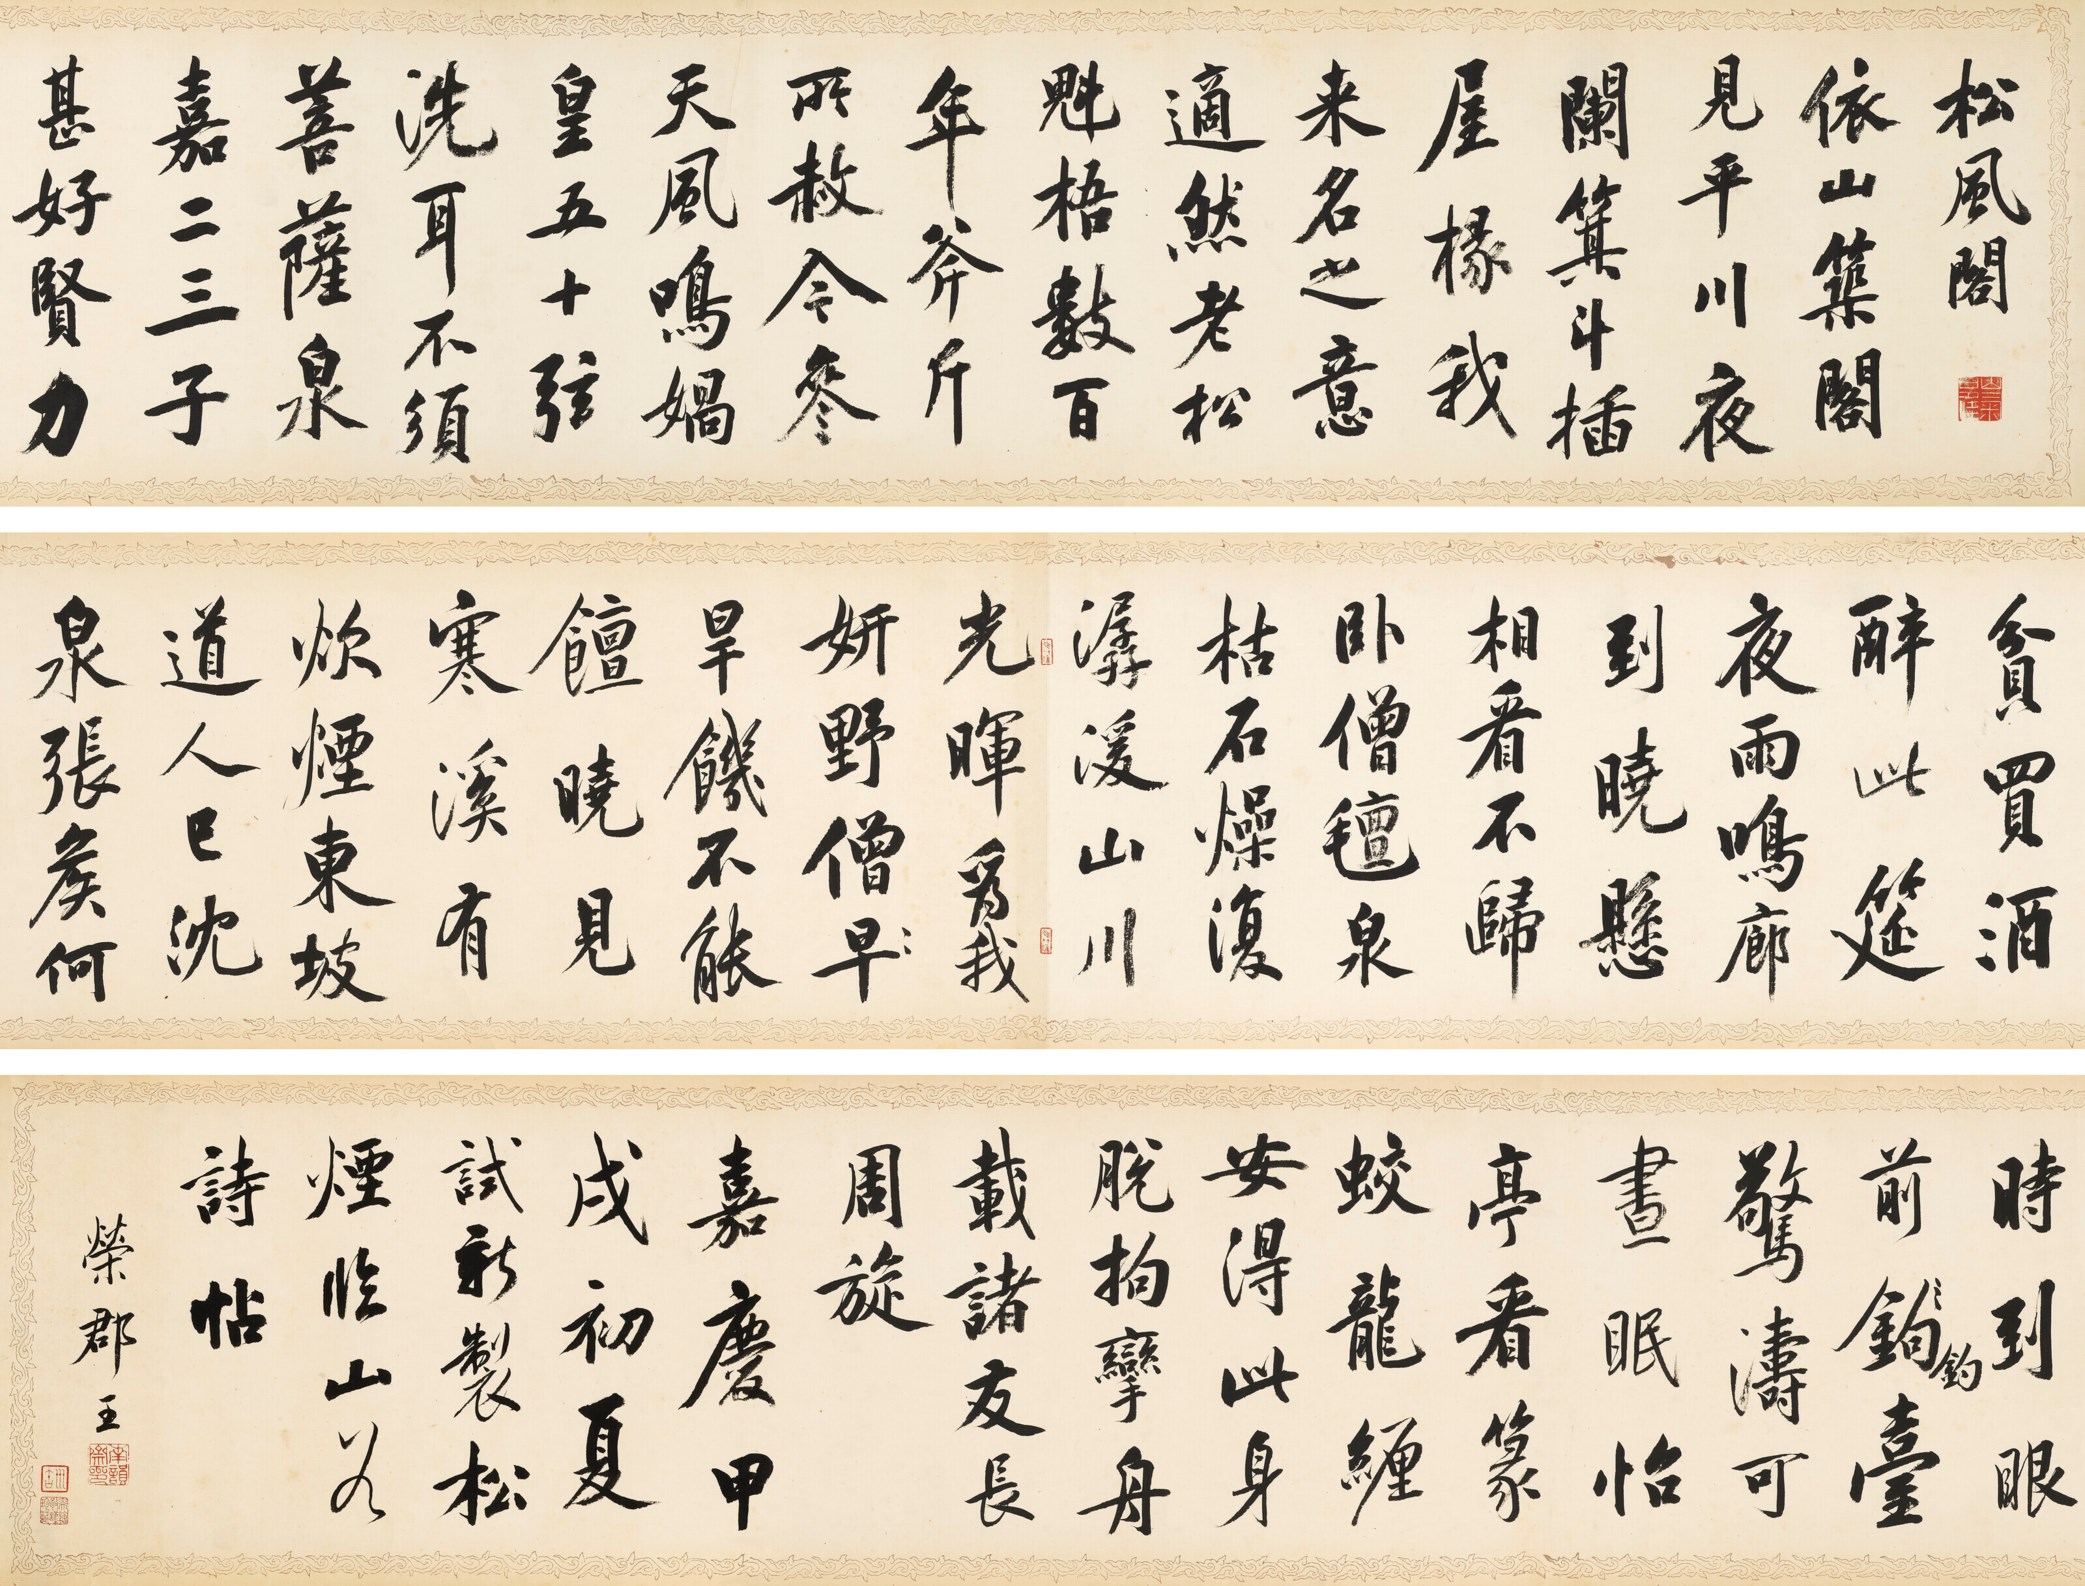 松風閣
依山築閣
見平川夜
闌箕斗插
屋椽我
来名之意
適然老松
魁梧數百
年斧斤
所赦今參
天風鳴媧
皇五十弦
洗耳不須
菩薩泉
嘉二三子
甚好賢力
貧買酒
醉此筵
夜雨鳴廊
到曉懸
相看不歸
卧僧氊泉
枯石燥復
潺湲山川
光暉爲我
妍野僧早〻
旱饑不能
饘曉見
寒溪有
炊煙東坡
道人已沈
泉張矦何
時到眼
前鈎〻釣臺
驚濤可
晝眠怡
亭看篆
蛟龍纏
安得此身
脫拘攣舟
載諸友長
周旋
嘉慶甲
戌初夏
試新製松
煙臨山谷
詩帖
榮郡王